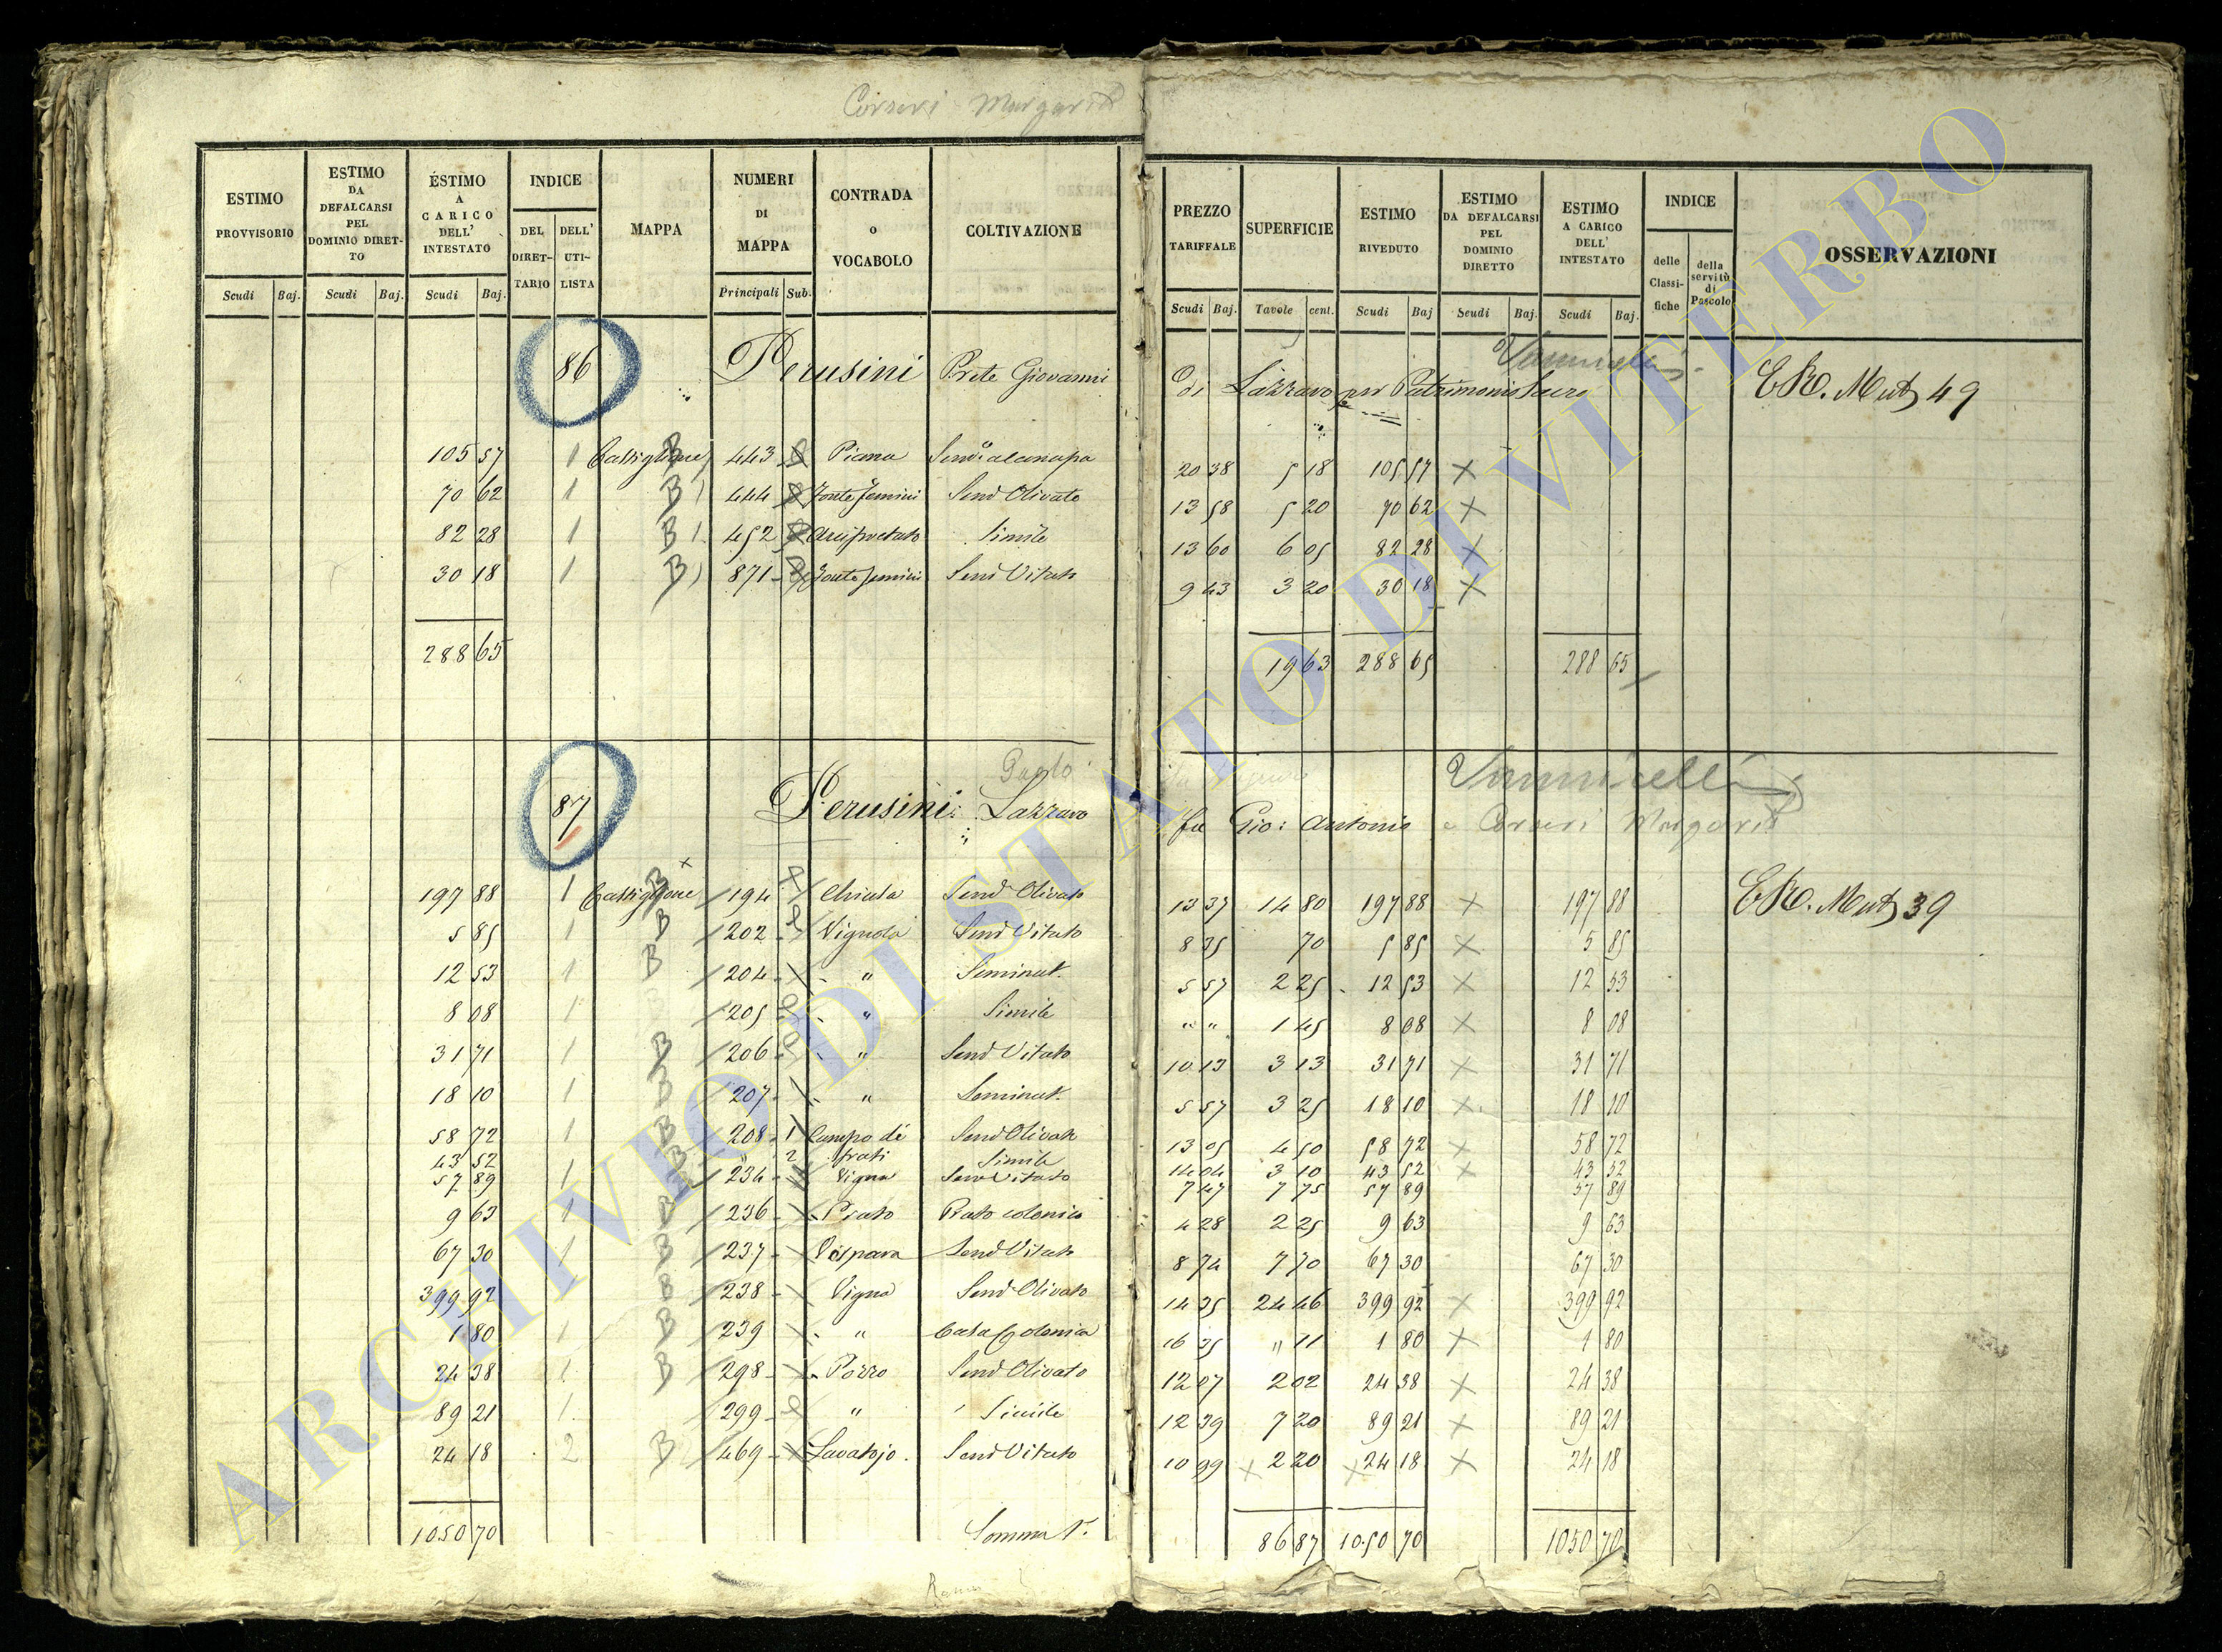 Corseri Margarit
ESTIMO PROVVISORIO | ESTIMO DA DEFALCARSI PEL DOMINIO DIRET-TO | ESTIMO A CARICO DELL' INTESTATO | INDICE DEL DIRET-TARIO | DELL' UTI-LISTA | MAPPA | NUMERI DI MAPPA | CONTRADA o VOCABOLO | COLTIVAZIONE | PREZZO TARIFFALE | SUPERFICIE | ESTIMO RIVEDUTO | ESTIMO DA DEFALCARSI PEL DOMINIO DIRETTO | ESTIMO A CARICO DELL' INTESTATO | INDICE delle Classi-fiche | della servitù di Pascolo | OSSERVAZIONI
Scudi | Baj. | Scudi | Baj. | Scudi | Baj. | Principali | Sub. | Scudi | Baj. | Tavole | cent. | Scudi | Baj | Scudi | Baj. | Scudi | Baj.
Vannicelli
86 Perusini Prete Giovanni di Lazzaro per Patrimonio Sacro
105 57 | 1 | Castiglione B | 443 | Piana | 20 38 | 5 18 | 105 57 | X | E R. Mut 49
70 62 | 1 | B | 444 | Fonte Jemini | Send Olivato | 13 58 | 5 20 | 70 62 | X
82 28 | 1 | B | 452 | Arcipretato | Simile | 13 60 | 6 05 | 82 28 | X
30 18 | 1 | B | 871 | Fonte Jemini | Send Vitato | 9 43 | 3 20 | 30 18 | X
288 65 | 19 63 | 288 65 | 288 65
Paolo Vannicelli
87 Perusini: Lazzaro fu Gio: Antonio e Corseri Margarit
197 88 | 1 | Castiglione B | 194 | Chiusa | Send Olivato | 13 37 | 14 80 | 197 88 | X | 197 88 | E R. Mut 39
5 85 | 1 | B | 202 | Vignola | Send Vitato | 8 35 | 70 | 5 85 | X | 5 85
12 53 | 1 | B | 204 | " | Seminat. | 5 57 | 2 25 | 12 53 | X | 12 53
8 08 | 1 | 205 | " | Simile | " " | 1 45 | 8 08 | X | 8 08
31 71 | 1 | B | 206 | " | Send Vitato | 10 13 | 3 13 | 31 71 | X | 31 71
18 10 | 1 | B | 207 | " | Seminat. | 5 57 | 3 25 | 18 10 | X | 18 10
58 72 | 1 | B | 208 | 1 | Campo di | Send Olivato | 13 05 | 4 50 | 58 72 | X | 58 72
43 52 | B | " | 2 | frati | Simile | 14 04 | 3 10 | 43 52 | X | 43 52
57 89 | 1 | 234 | Vigna | Send Vitato | 7 47 | 7 75 | 57 89 | 57 89
9 63 | 1 | B | 236 | Prato | Prato colonico | 4 28 | 2 25 | 9 63 | 9 63
67 30 | 1 | B | 237 | Vispara | Send Vitato | 8 74 | 7 70 | 67 30 | 67 30
399 92 | 1 | B | 238 | Vigna | Send Olivato | 14 35 | 24 46 | 399 92 | X | 399 92
1 80 | 1 | B | 239 | " | Casa Colonica | 16 35 | " 11 | 1 80 | X | 1 80
24 38 | 1 | B | 298 | Pozzo | Send Olivato | 12 07 | 2 02 | 24 38 | X | 24 38
89 21 | 1 | 299 | " | Simile | 12 39 | 7 20 | 89 21 | X | 89 21
24 18 | 2 | B | 469 | Lavatojo | Send Vitato | 10 99 | X 2 20 | X 24 18 | X | 24 18
1050 70 | Somma | 86 87 | 1050 70 | 1050 70
ARCHIVIO DI STATO DI VITERBO